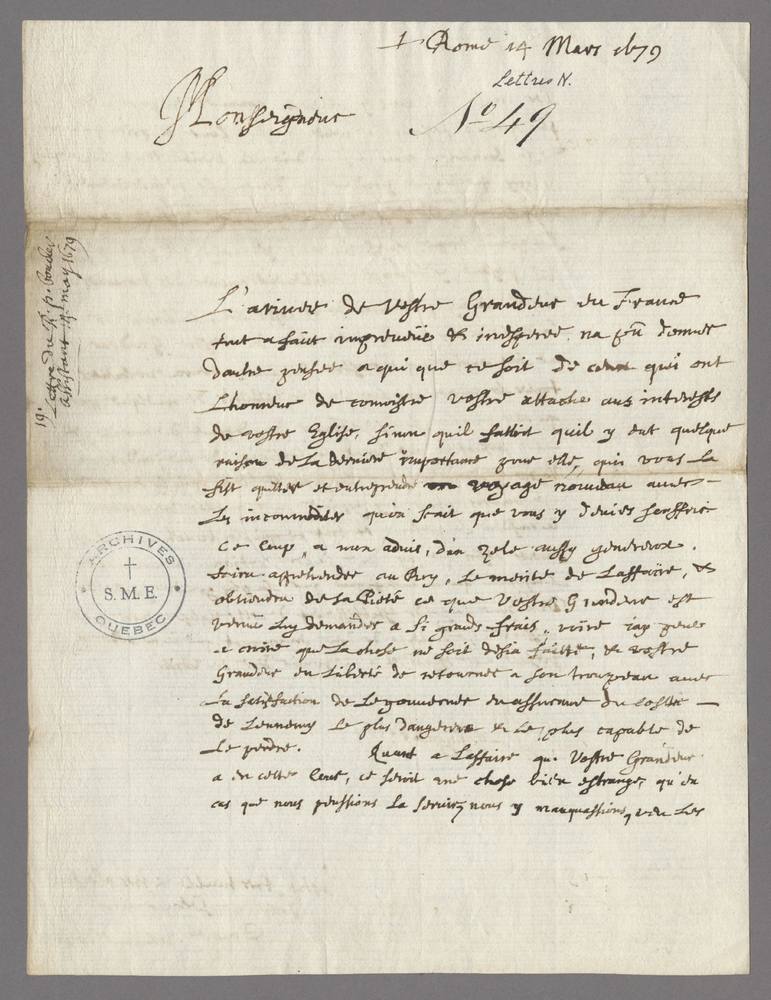 Rome 14 Mars 1679
Lettres N.
No 49
Monseigneur
19.
Lettre du R. p. boucher
assistant 14 may 1679
L'arivee de vostre Grandeur en France
tout a faict impreveüe & inesperee na peu donner
dautre pensee a qui que ce soit de ceux qui ont
Lhonneur de connoistre vostre attache aus interests
de vostre Eglise, sinon quil falloit quil y eut quelque
raison de La derniere importance pour elle, qui vous La
fist quitter et entreprendre un voyage nouveau avec
Les incommoditez qu'on scait que vous y devies souffrir
Ce coup, a mon advis, d'un zele aussy genereux,
fera apprehender au Roy, Le merite de Laffaire, &
obtiendra de sa Pieté ce que Vostre Grandeur est
venuë Luy demander a si grands frais,
a croire que La chose ne soit desia faitte, & vostre
Grandeur en Liberté de retourner a son trouppeau avec
La satisfaction de Le gouverner en assurance du costé
de Lennemy Le plus dangereux & Le plus capable de
Le perdre. Quant a Laffaire que Vostre Grandeur
a en cette Cour, ce seroit une chose bien estrange, qu'en
cas que nous peussions La servir, nous y manquassions, veu Les
ARCHIVES
S. M. E.
QUEBEC